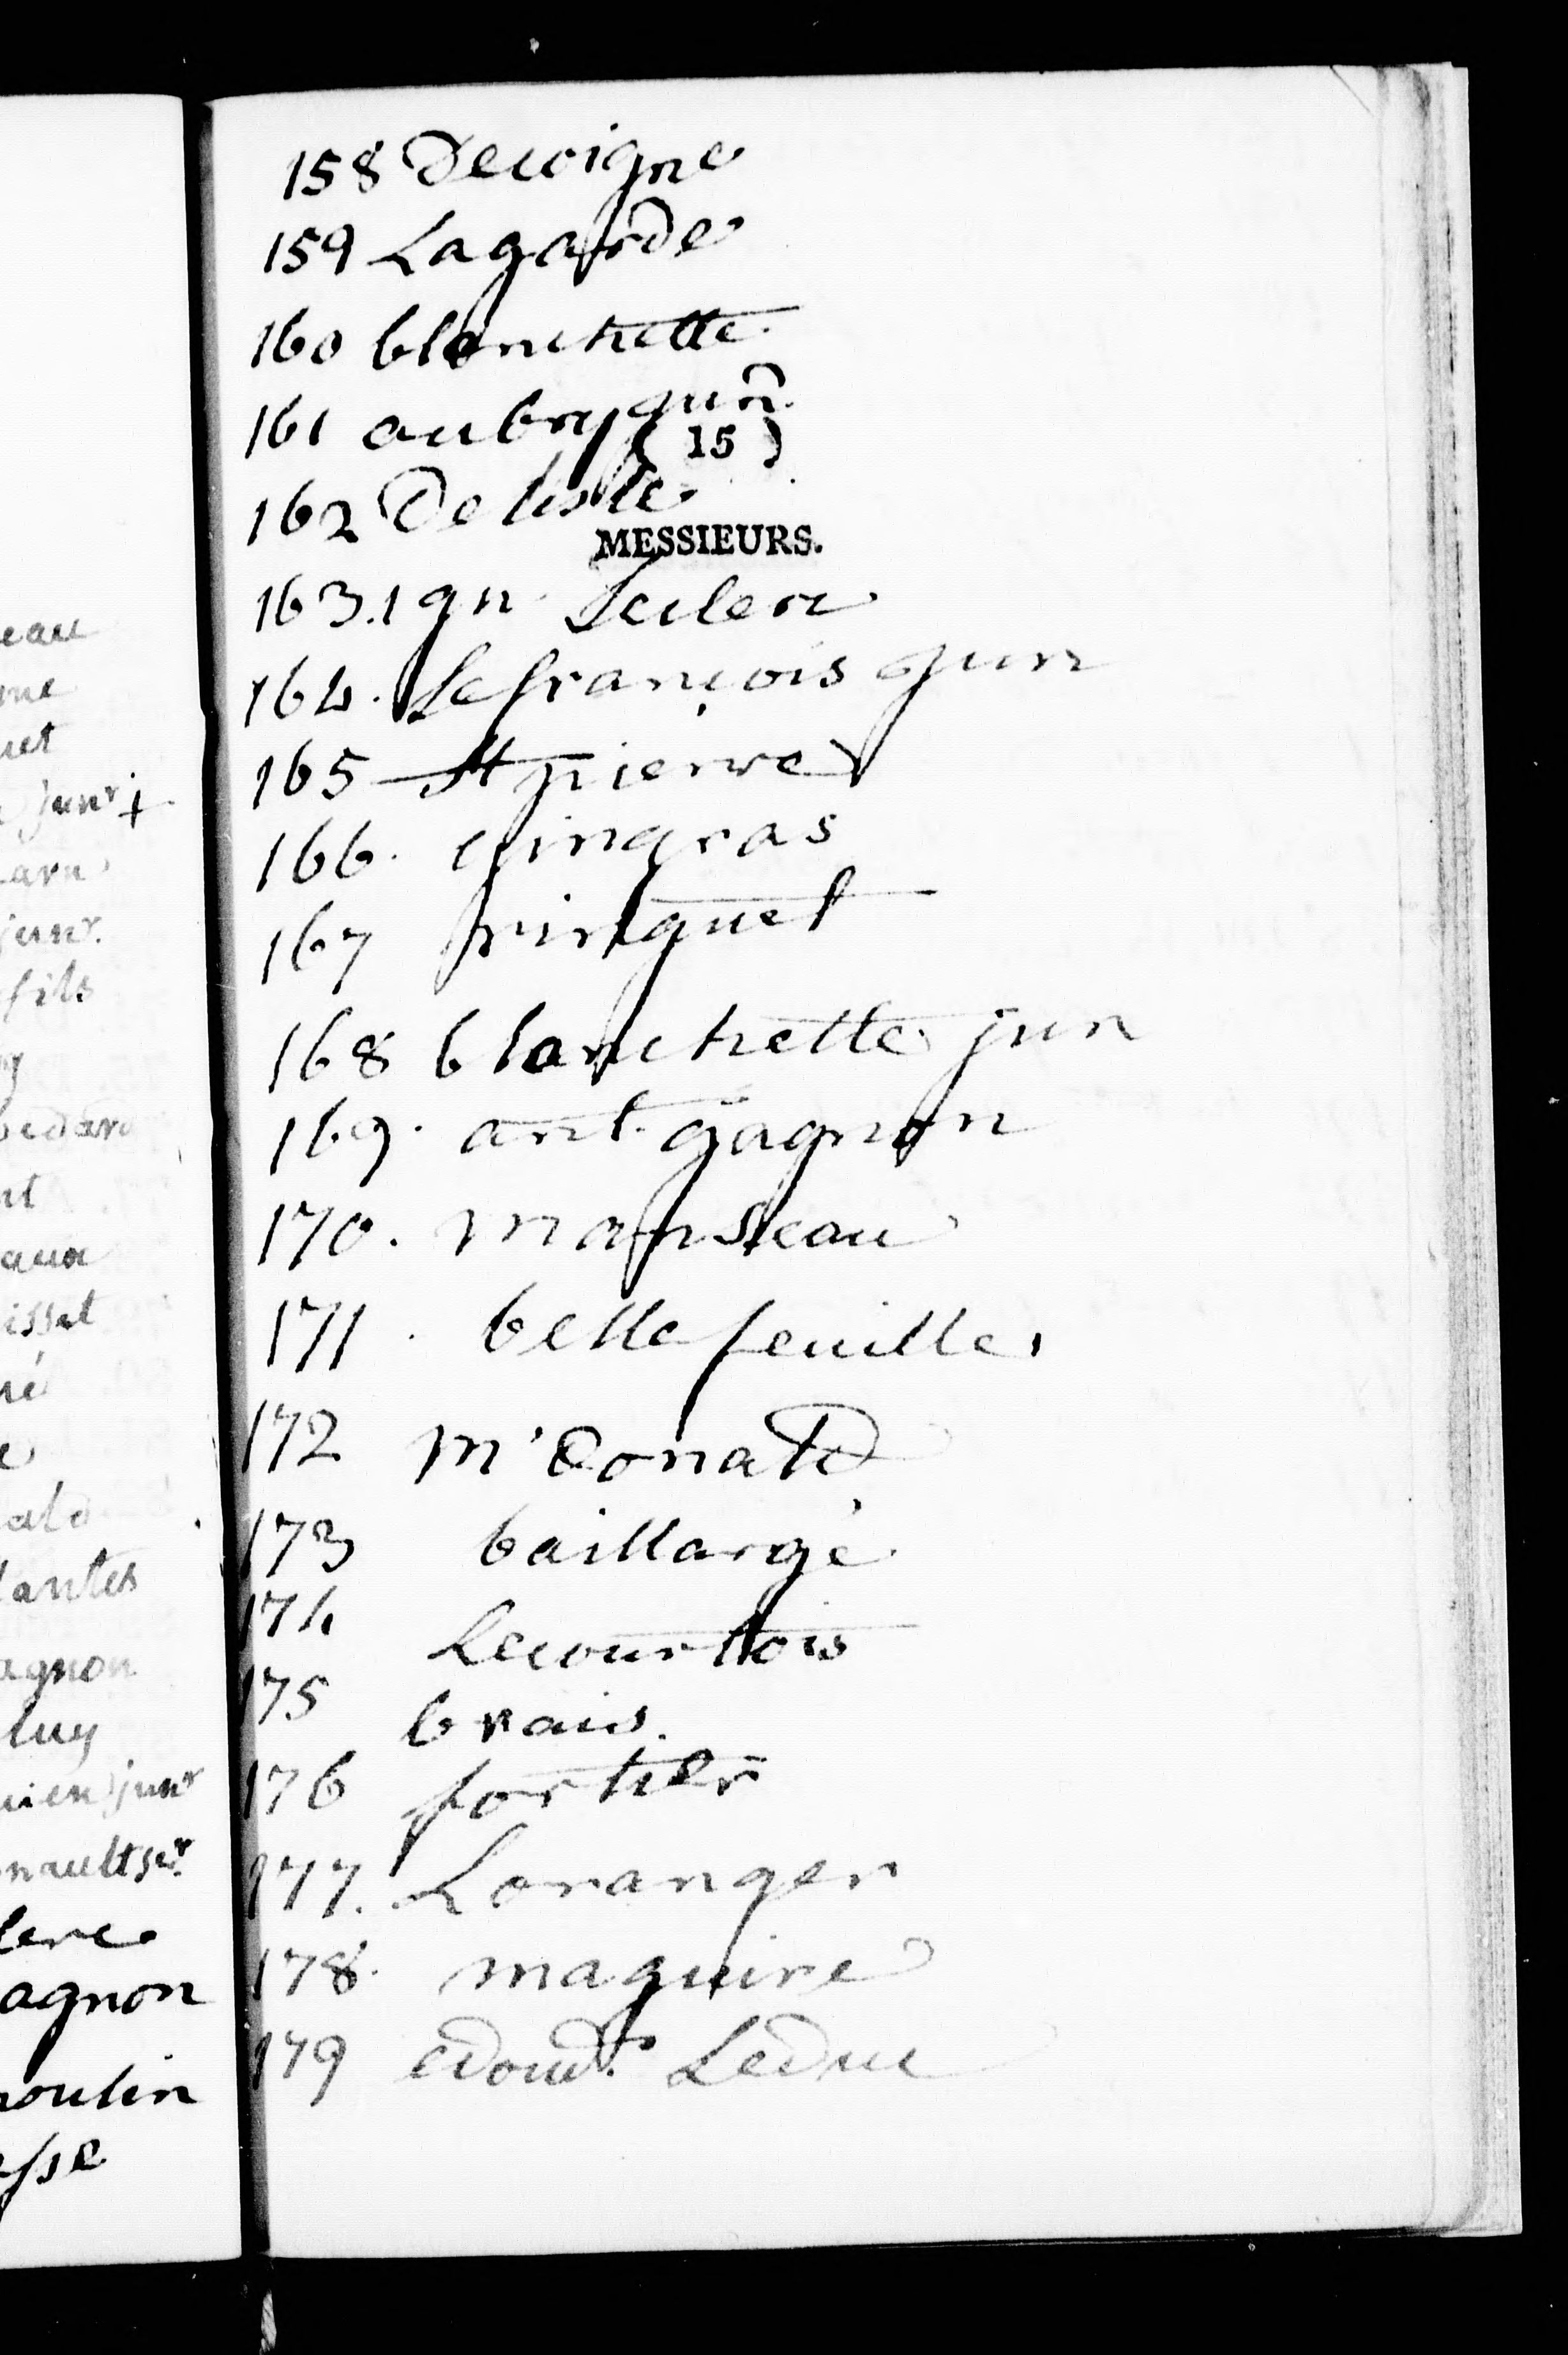 158 Decoigne
159 Lagarde
160 blanchette
161 aubry junr.
( 15 )
162 Delisle
MESSIEURS.
163. Ign Leclerc
164. Lefrançois jun
165 St pierre
166. gingras
167 pinguet
168 blanchette jun
169. ant. gagnon
170. manseau
171. bellefeuille
172 m'Donald
173 baillargé
174 Lecourtois
175 brais.
176 fortier
177. Loranger
178. maguire
179 edoud. Leduc
eau
me
uet
junr +
arn
junr.
fils
y
bedard
nt
aux
isset
né
e
ald
lantes
agnon
luy
ien junr
nault senr.
lerc
agnon
oulin
sse